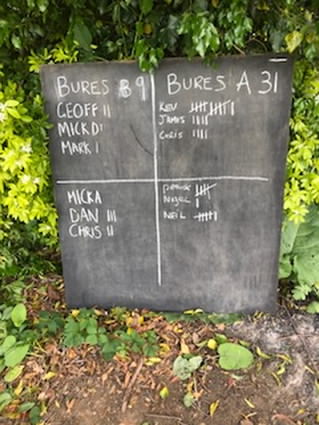 BURES B 9
GEOFF II
MICK D I
MARK I
MICKA
DAN III
CHRIS II
BURES A 31
KEV
JAMES IIII
CHRIS IIII
PATRICK
NIGEL I
NEIL